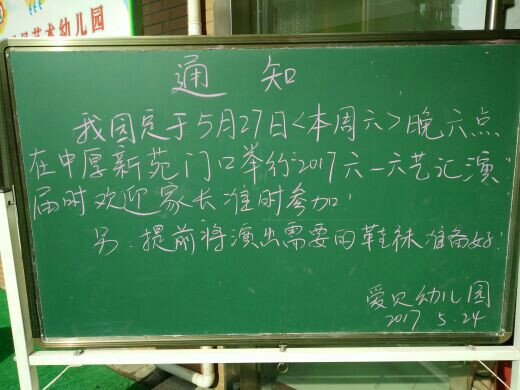 艺术幼儿园
通知
我园定于5月27日<本周六>晚六点
在中厚新苑门口举行2017六一六艺汇演"
届时欢迎家长准时参加!
另:提前将演出需要的鞋袜准备好!
爱贝幼儿园
2017.5.24